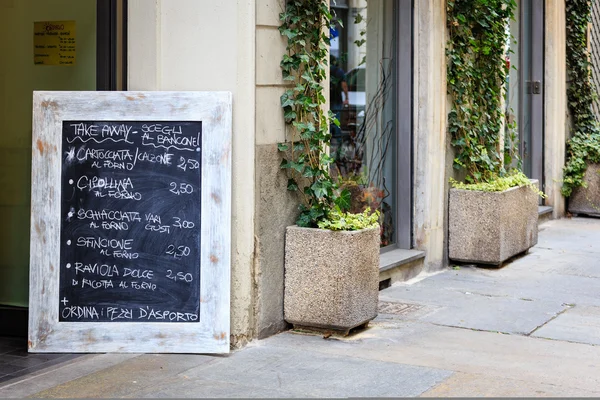 TAKE AWAY - SCEGLI
AL BANCONE!
CARTOCCIATA/CALZONE 2,50
AL FORNO
CIPOLLINA 2,50
AL FORNO
SCHIACCIATA VARI 3,00
AL FORNO GUSTI
SFINCIONE 2,50
AL FORNO
RAVIOLA DOLCE 2,50
DI RICOTTA AL FORNO
+
ORDINA i PEZZI D'ASPORTO